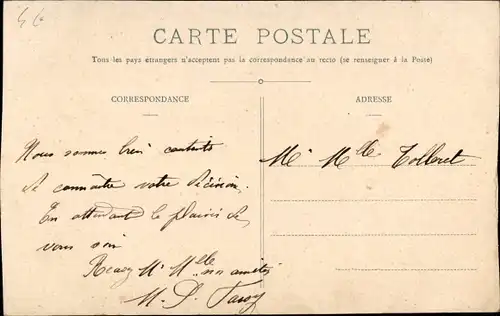 CARTE POSTALE
Tous les pays étrangers n'acceptent pas la correspondance au recto (se renseigner à la Poste)
CORRESPONDANCE
ADRESSE
Nous sommes bien contents
de connaitre votre décision.
En attendant le plaisir de
vous voir
M Mlle nos amitiés
M.
Mr Mlle Tolleret